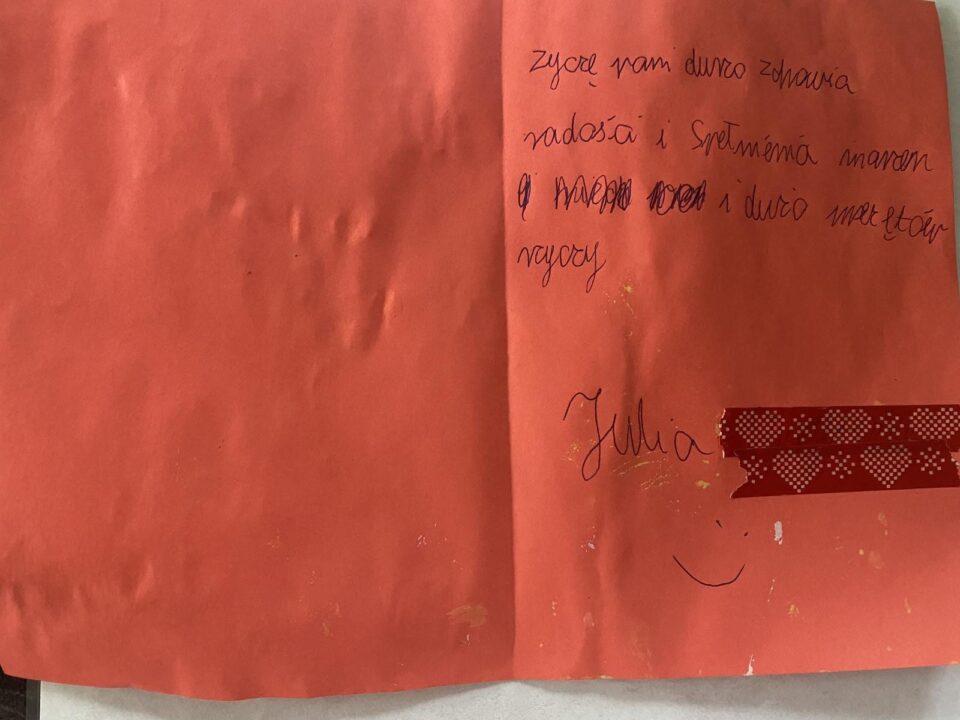 zyczę wam dużo zdrowia
radości i Spełniénia marzen
i dużo prezętów
życzy
Julia